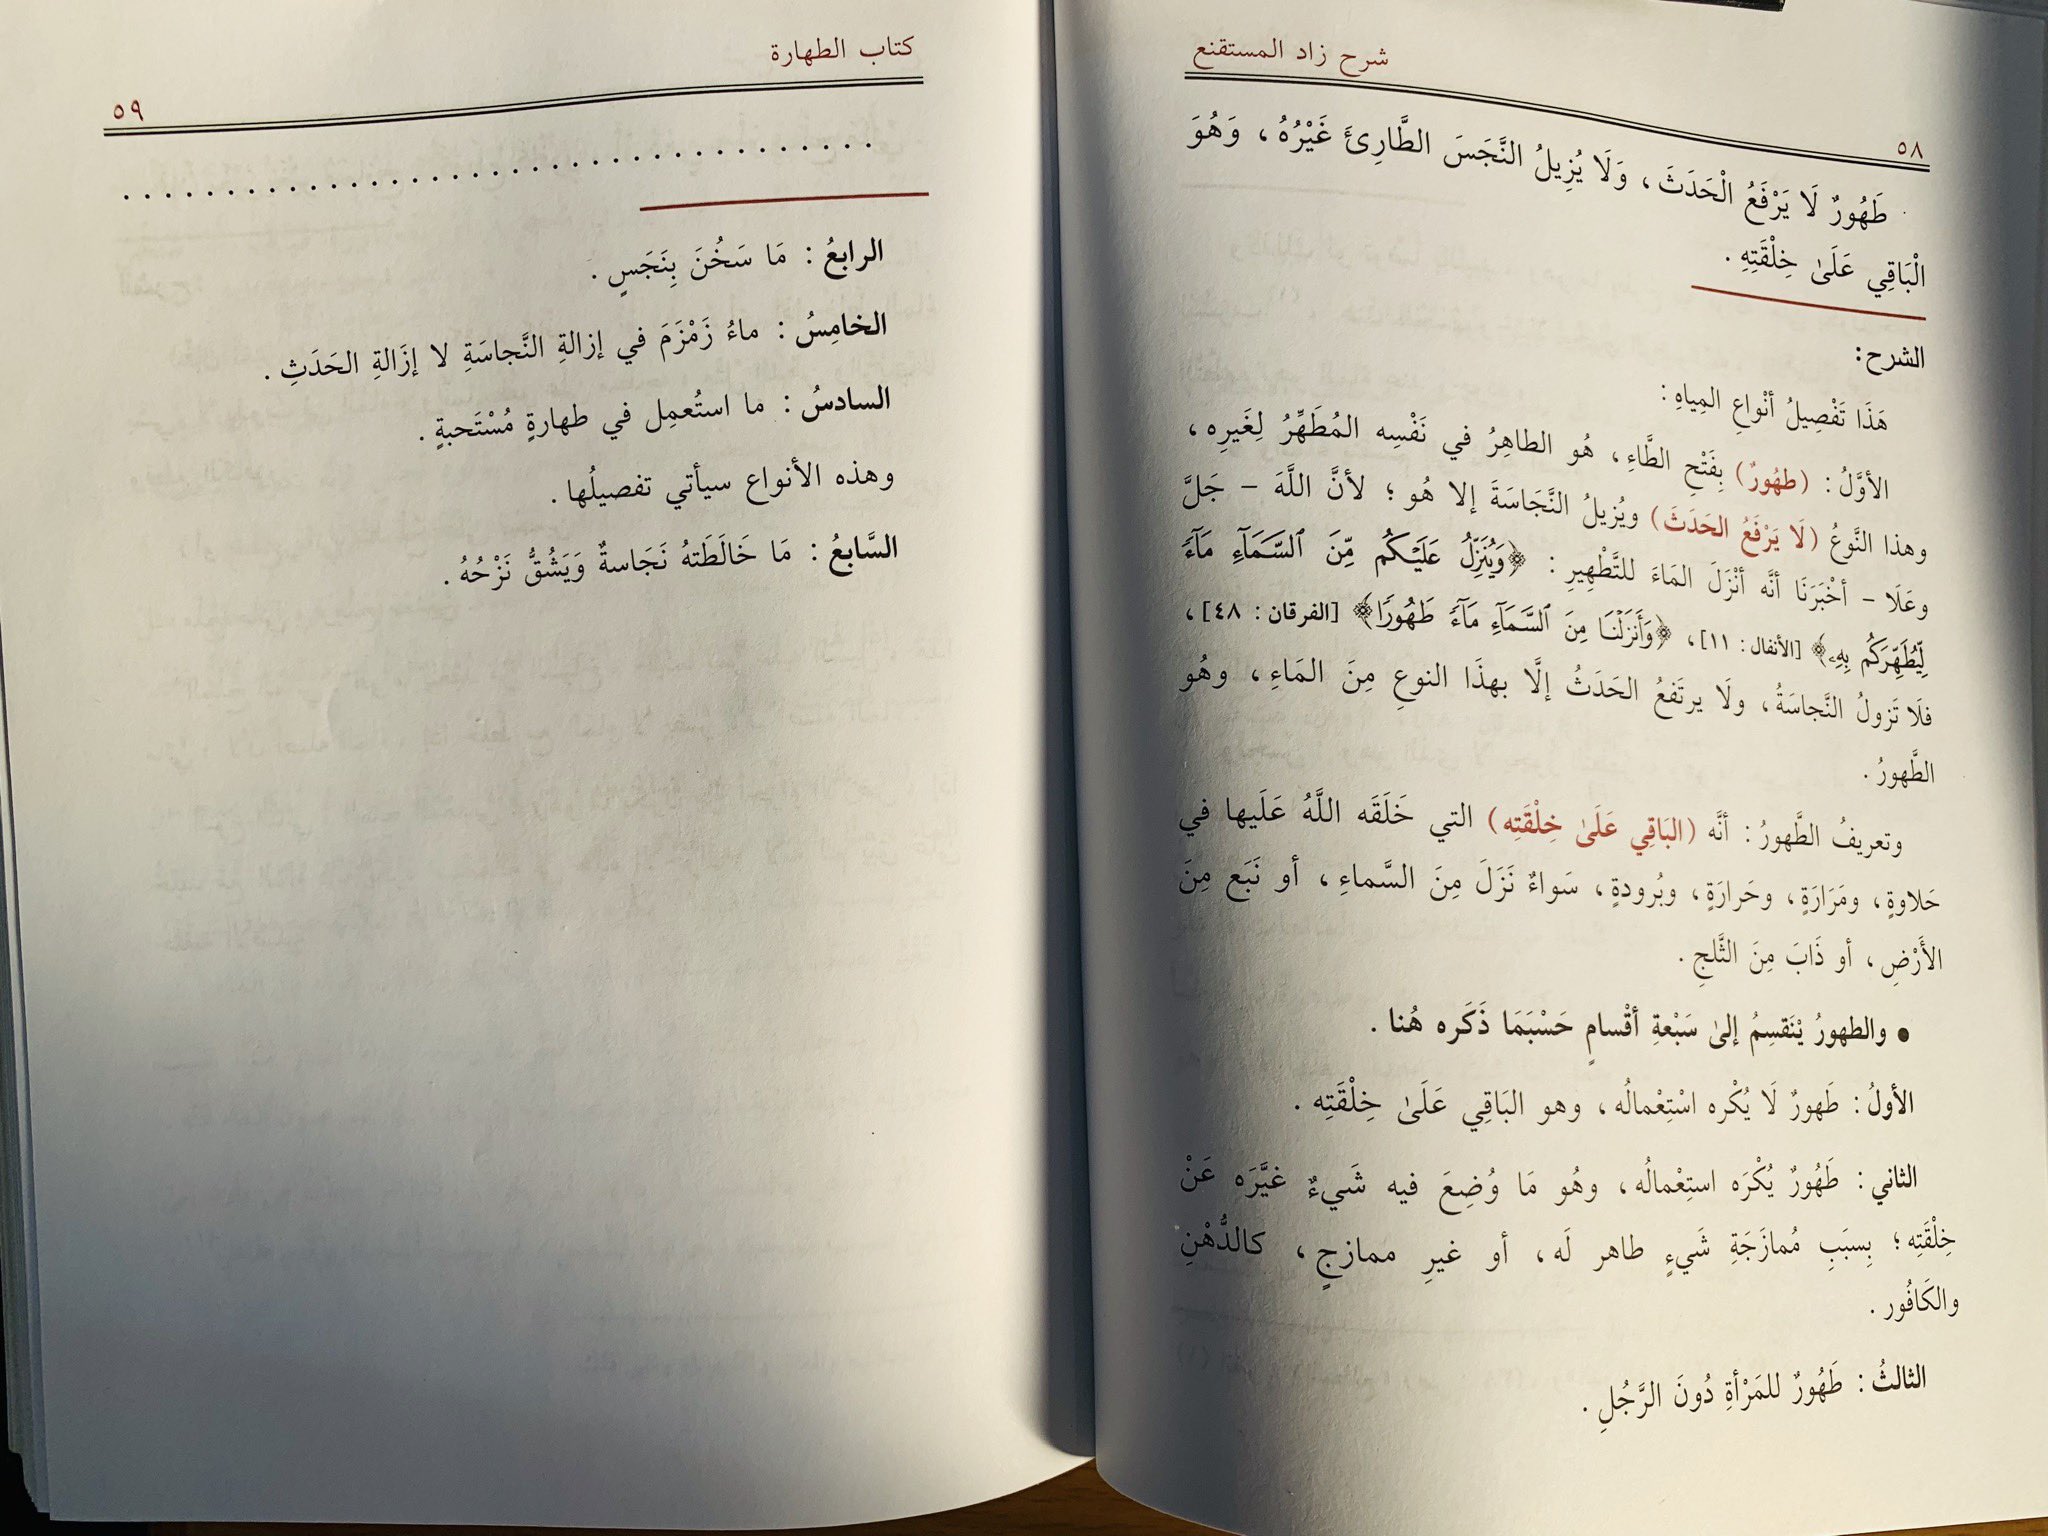 شرح زاد المستقنع
٥٨
طَهُورٌ لَا يَرْفَعُ الْحَدَثَ، وَلَا يُزِيلُ النَّجَسَ الطَّارِئَ غَيْرُهُ، وَهُوَ
الْبَاقِي عَلَىٰ خِلْقَتِهِ.
الشرح:
هَذَا تَفْصِيلُ أنْواعِ المِياهِ:
الأوَّلُ: (طهُورٌ) بِفَتْحِ الطَّاءِ، هُو الطاهِرُ في نَفْسِه المُطَهِّرُ لِغَيرِه،
وهذا النَّوعُ (لَا يَرْفَعُ الحَدَثَ) ويُزيلُ النَّجَاسَةَ إلا هُو؛ لأنَّ اللَّهَ - جَلَّ
وعَلَا - أخْبَرَنَا أنَّه أنْزَلَ المَاءَ للتَّطْهِيرِ: ﴿وَيُنَزِّلُ عَلَيْكُم مِّنَ ٱلسَّمَآءِ مَآءً
لِّيُطَهِّرَكُم بِهِۦ﴾ [الأنفال: ١١]، ﴿وَأَنزَلْنَا مِنَ ٱلسَّمَآءِ مَآءً طَهُورًا﴾ [الفرقان: ٤٨]،
فلَا تَزولُ النَّجاسَةُ، ولَا يرتَفعُ الحَدَثُ إلَّا بهذَا النوعِ مِنَ المَاءِ، وهُو
الطَّهورُ.
وتعريفُ الطَّهورُ: أنَّه (البَاقِي عَلَىٰ خِلْقَتِه) التي خَلَقَه اللَّهُ عَلَيها في
حَلاوةٍ، ومَرَارَةٍ، وحَرارَةٍ، وبُرودةٍ، سَواءٌ نَزَلَ مِنَ السَّماءِ، أو نَبَع مِنَ
الأَرْضِ، أو ذَابَ مِنَ الثَّلجِ.
• والطهورُ يْنَقسِمُ إلىٰ سَبْعةِ أقْسامٍ حَسْبَمَا ذَكَره هُنا.
الأولُ: طَهورٌ لَا يُكْره اسْتِعْمالُه، وهو البَاقِي عَلَىٰ خِلْقَتِه.
الثاني: طَهُورٌ يُكْرَه استِعْمالُه، وهُو مَا وُضِعَ فيه شَيءٌ غيَّرَه عَنْ
خِلْقَتِه؛ بِسبَبِ مُمازَجَةِ شَيءٍ طاهر لَه، أو غيرِ ممازجٍ، كالدُّهْنِ
والكَافُور.
الثالثُ: طَهُورٌ للمَرْأةِ دُونَ الرَّجُلِ.
كتاب الطهارة
٥٩
الرابعُ: مَا سَخُنَ بِنَجَسٍ.
الخامِسُ: ماءُ زَمْزَمَ في إزالةِ النَّجاسَةِ لا إزَالةِ الحَدَثِ.
السادسُ: ما استُعمِل في طهارةٍ مُسْتَحبةٍ.
وهذه الأنواع سيأتي تفصيلُها.
السَّابعُ: مَا خَالَطَتهُ نَجَاسةٌ وَيَشُقُّ نَزْحُهُ.